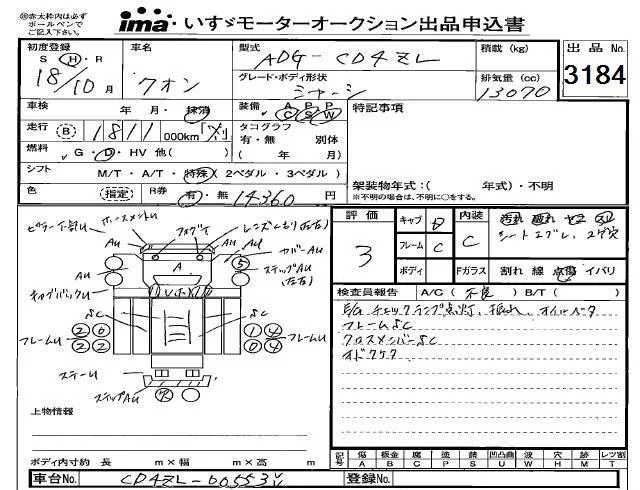 ㊟赤太枠内は必ず
ボールペンで
ご記入下さい。
ima・いすゞモーターオークション出品申込書
初度登録 車名 型式 積載(kg) 出品No.
S・H・R
18/10月 クオン ADG-CD4ZL
グレード・ボディ形状 排気量(cc) 3184
シャーシ 13070
車検 年・月・抹消 装備 A P P C S W 特記事項
走行 B 1811 000km タコグラフ 有・無 別体
燃料 G・D・HV 他( ) ( 年 月)
シフト M/T・A/T・特殊( 2ペダル・3ペダル )
色 (指定) R券 有・無 14360 円
架装物年式:( 年式)・不明
※不明の場合は、不明に○をする。
評価 キャブ D 内装
3 フレーム C C
ボディ Fガラス 割れ 線 点傷 イバリ
検査員報告 A/C( 不良 ) B/T( )
E/Gチェックランプ点灯、
フレームSC
クロスメンバーSC
ピラー下部U ホースメントU フォグイ
AU A カバーAU
ステップAU
(左右)
キャブバックU
SC SC
フレームU 2 0 1 4 フレームU
2 2 0 4
ステーU
ステップAU
上物情報
ボディ内寸約 長 m×幅 m×高 m
記号 傷 板金 腐 塗 錆 凹凸曲 波 穴 跡 レツ割
A B C P S U W H M T
車台No. CD4ZL-00553 登録No.